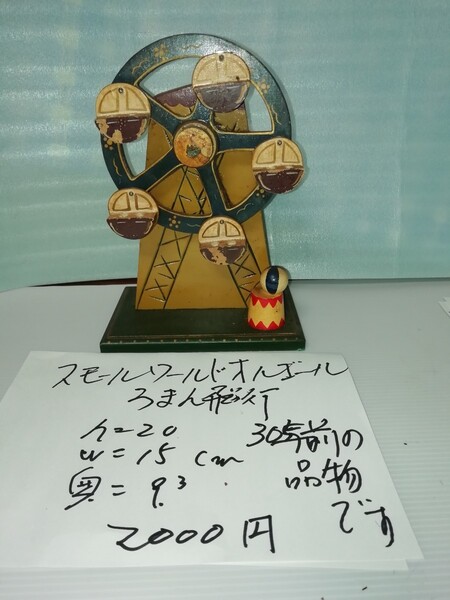 スモールワールドオルゴール
ろまん飛行
h=20
w=15 cm
奥=9.3
30年前の
品物
です
2000円